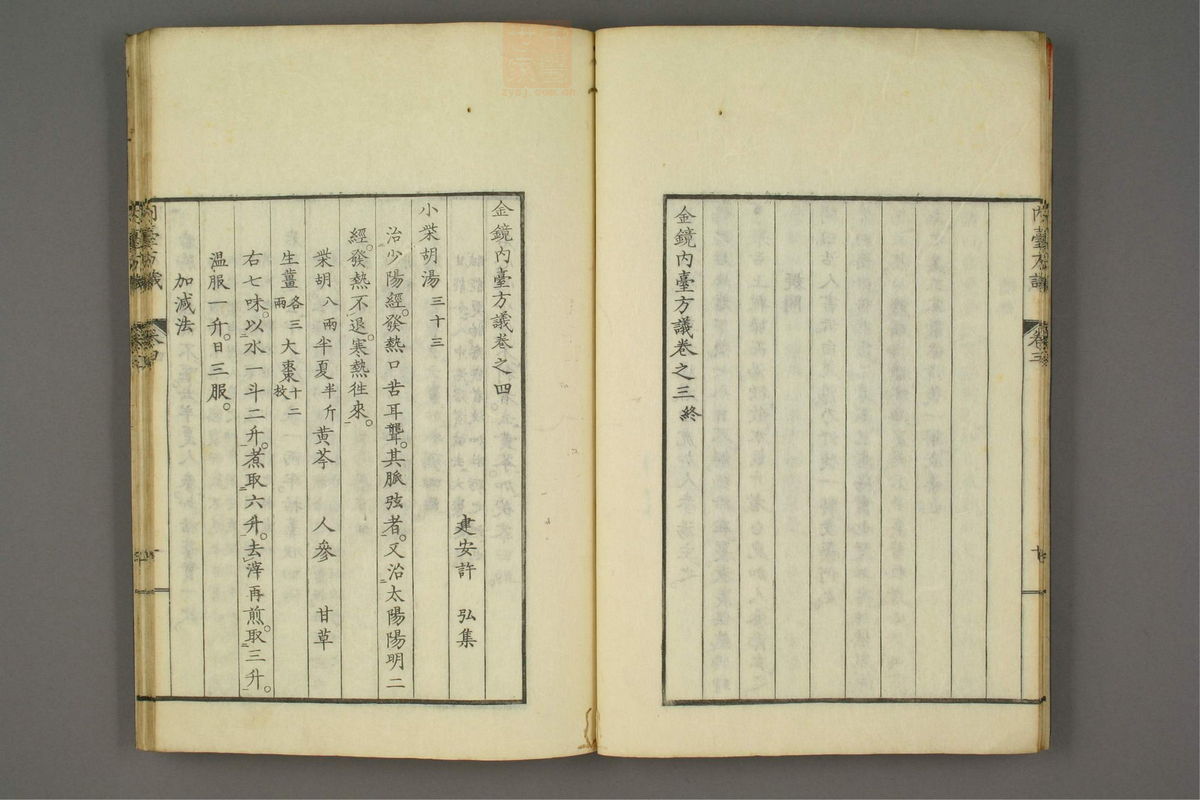 金鏡內臺方議卷之三終
金鏡內臺方議卷之四
建安許　弘集
小柴胡湯三十三
治少陽經。發熱口苦耳聾。其脈弦者。又治太陽陽明二
經。發熱不退。寒熱徃來。
柴胡八兩半夏半斤黃芩　人參　甘草
生薑各三兩大棗十二枚
右七味。以水一斗二升。煮取六升。去滓再煎。取三升。
温服一升。日三服。
加減法